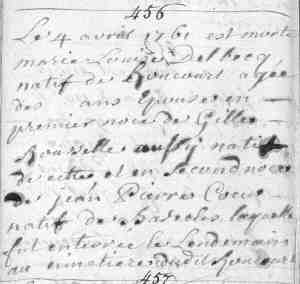 456
Le 4 avril 1761 est morte
marie Louise Delbecq
natif de Roncourt agée
des ans Epouse en
premier noce de Gille
Rouvelle aussy natif
de et en second noce
de jean Pierre Coeur
natif de laquelle
fut enterree le Lendemain
au cimetiere dudit
457